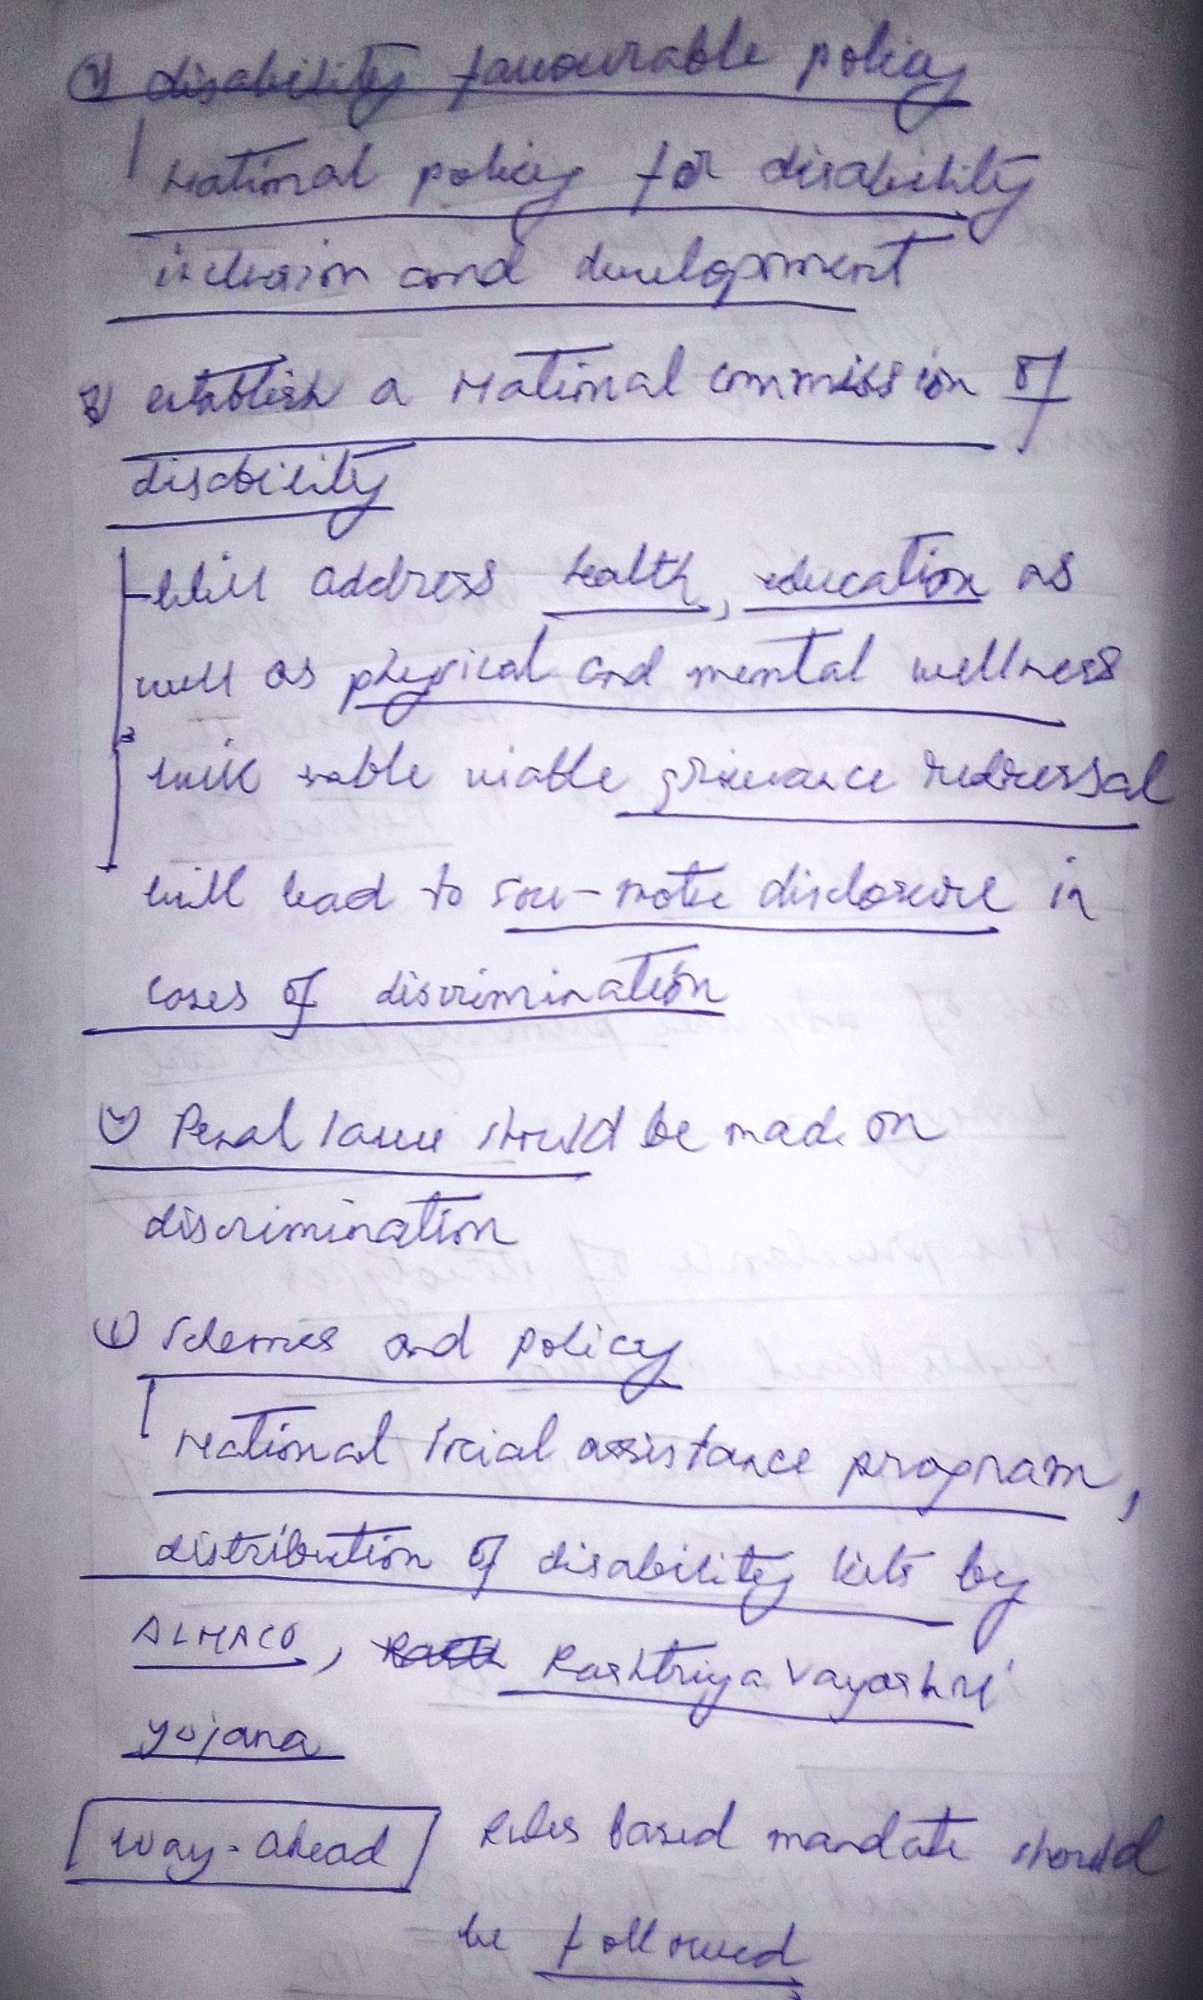 disability favourable policy
National policy for disability
inclusion and development
establish a National commission of
disability
will address health, education as
well as physical and mental wellness
viable grievance redressal
will lead to sou-moto disclosure in
cases of discrimination
Penal laws should be made on
discrimination
Schemes and policy
National social assistance program,
distribution of disability kits by
ALMACO, Rashtriya Vayoshri
yojana
Way-ahead Rules based mandate should
be followed